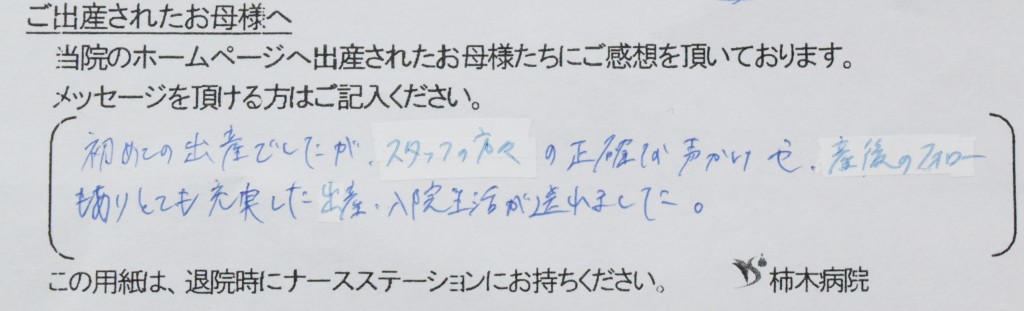 ご出産されたお母様へ
当院のホームページへ出産されたお母様たちにご感想を頂いております。
メッセージを頂ける方はご記入ください。
初めての出産でしたが、スタッフの方々の正確な声かけや、産後のフォロー
もありとても充実した出産、入院生活が送れました。
この用紙は、退院時にナースステーションにお持ちください。 柿木病院